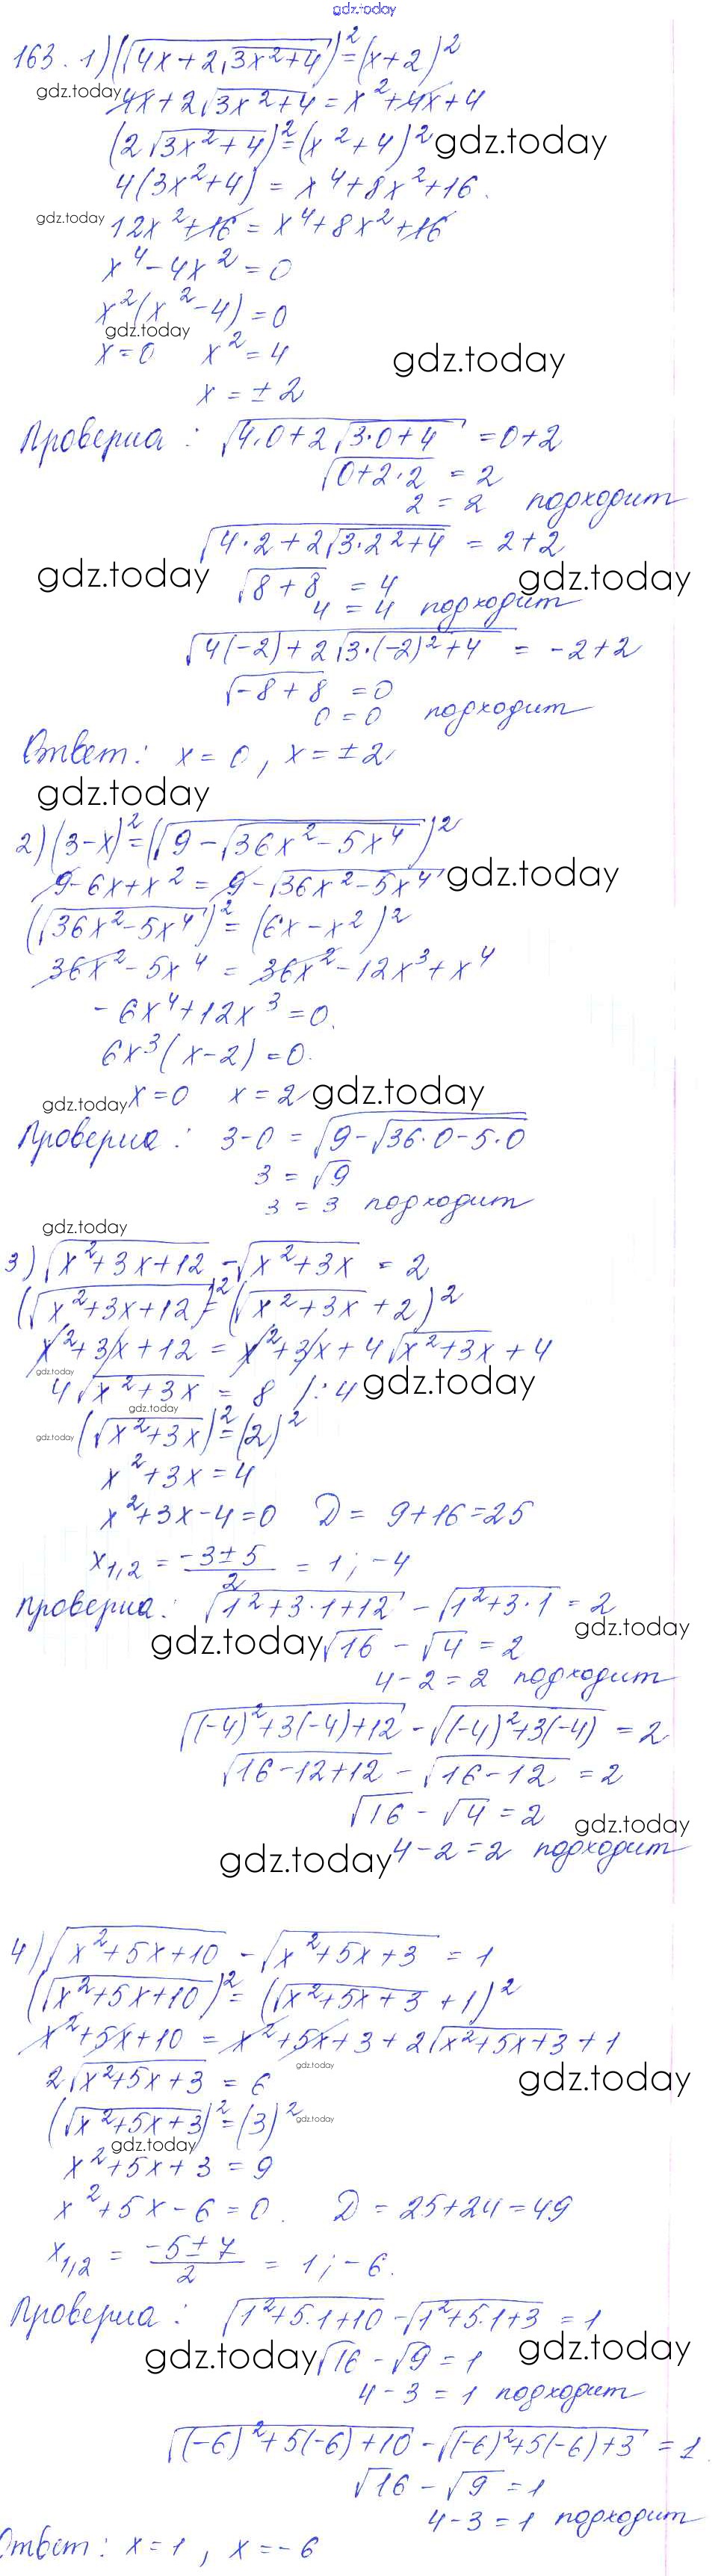 gdz.today
163. 1) (√(4x+2√(3x²+4)))²=(x+2)²
gdz.today 4x+2√(3x²+4)=x²+4x+4
(2√(3x²+4))²=(x²+4)² gdz.today
4(3x²+4) = x⁴+8x²+16.
gdz.today 12x²+16=x⁴+8x²+16
x⁴-4x²=0
x²(x²-4)=0
gdz.today
x=0 x²=4 gdz.today
x=±2
Проверка: √(4·0+2√(3·0+4)) =0+2
√(0+2·2) = 2
2=2 подходит
√(4·2+2√(3·2²+4)) = 2+2
gdz.today √(8+8) = 4 gdz.today
4=4 подходит
√(4(-2)+2√(3·(-2)²+4)) = -2+2
√(-8+8) =0
0=0 подходит
Ответ: x=0, x=±2
gdz.today
2) (3-x)²=(√(9-√(36x²-5x⁴)))²
9-6x+x²=9-√(36x²-5x⁴) gdz.today
(√(36x²-5x⁴))²=(6x-x²)²
36x²-5x⁴ = 36x²-12x³+x⁴
-6x⁴+12x³=0.
6x³(x-2)=0.
gdz.today x=0 x=2 gdz.today
Проверка: 3-0 =√(9-√(36·0-5·0))
3=√9
3=3 подходит
gdz.today
3) √(x²+3x+12) -√(x²+3x) = 2
(√(x²+3x+12))²=(√(x²+3x)+2)²
x²+3x+12 = x²+3x+4√(x²+3x)+4
gdz.today
4√(x²+3x) = 8 /:4 gdz.today
gdz.today
gdz.today (√(x²+3x))²=(2)²
x²+3x=4
x²+3x-4=0 D= 9+16=25
x₁,₂ = (-3±5)/2 = 1; -4
Проверка: √(1²+3·1+12) -√(1²+3·1) =2
gdz.today
gdz.today √16 -√4 =2
4-2=2 подходит
√((-4)²+3(-4)+12) -√((-4)²+3(-4)) =2
√(16-12+12) -√(16-12) =2
√16 -√4 =2 gdz.today
gdz.today 4-2=2 подходит
4) √(x²+5x+10) -√(x²+5x+3) = 1
(√(x²+5x+10))²=(√(x²+5x+3) +1)²
x²+5x+10 = x²+5x+3+2√(x²+5x+3)+1
gdz.today
2√(x²+5x+3) = 6 gdz.today
(√(x²+5x+3))²=(3)² gdz.today
gdz.today
x²+5x+3 = 9
x²+5x-6=0. D=25+24=49
x₁,₂ = (-5±7)/2 = 1; -6.
Проверка: √(1²+5·1+10) -√(1²+5·1+3) =1
gdz.today √16 -√9 =1 gdz.today
4-3=1 подходит
√((-6)²+5(-6)+10) -√((-6)²+5(-6)+3) =1
√16 -√9 =1
4-3=1 подходит
Ответ: x=1, x=-6